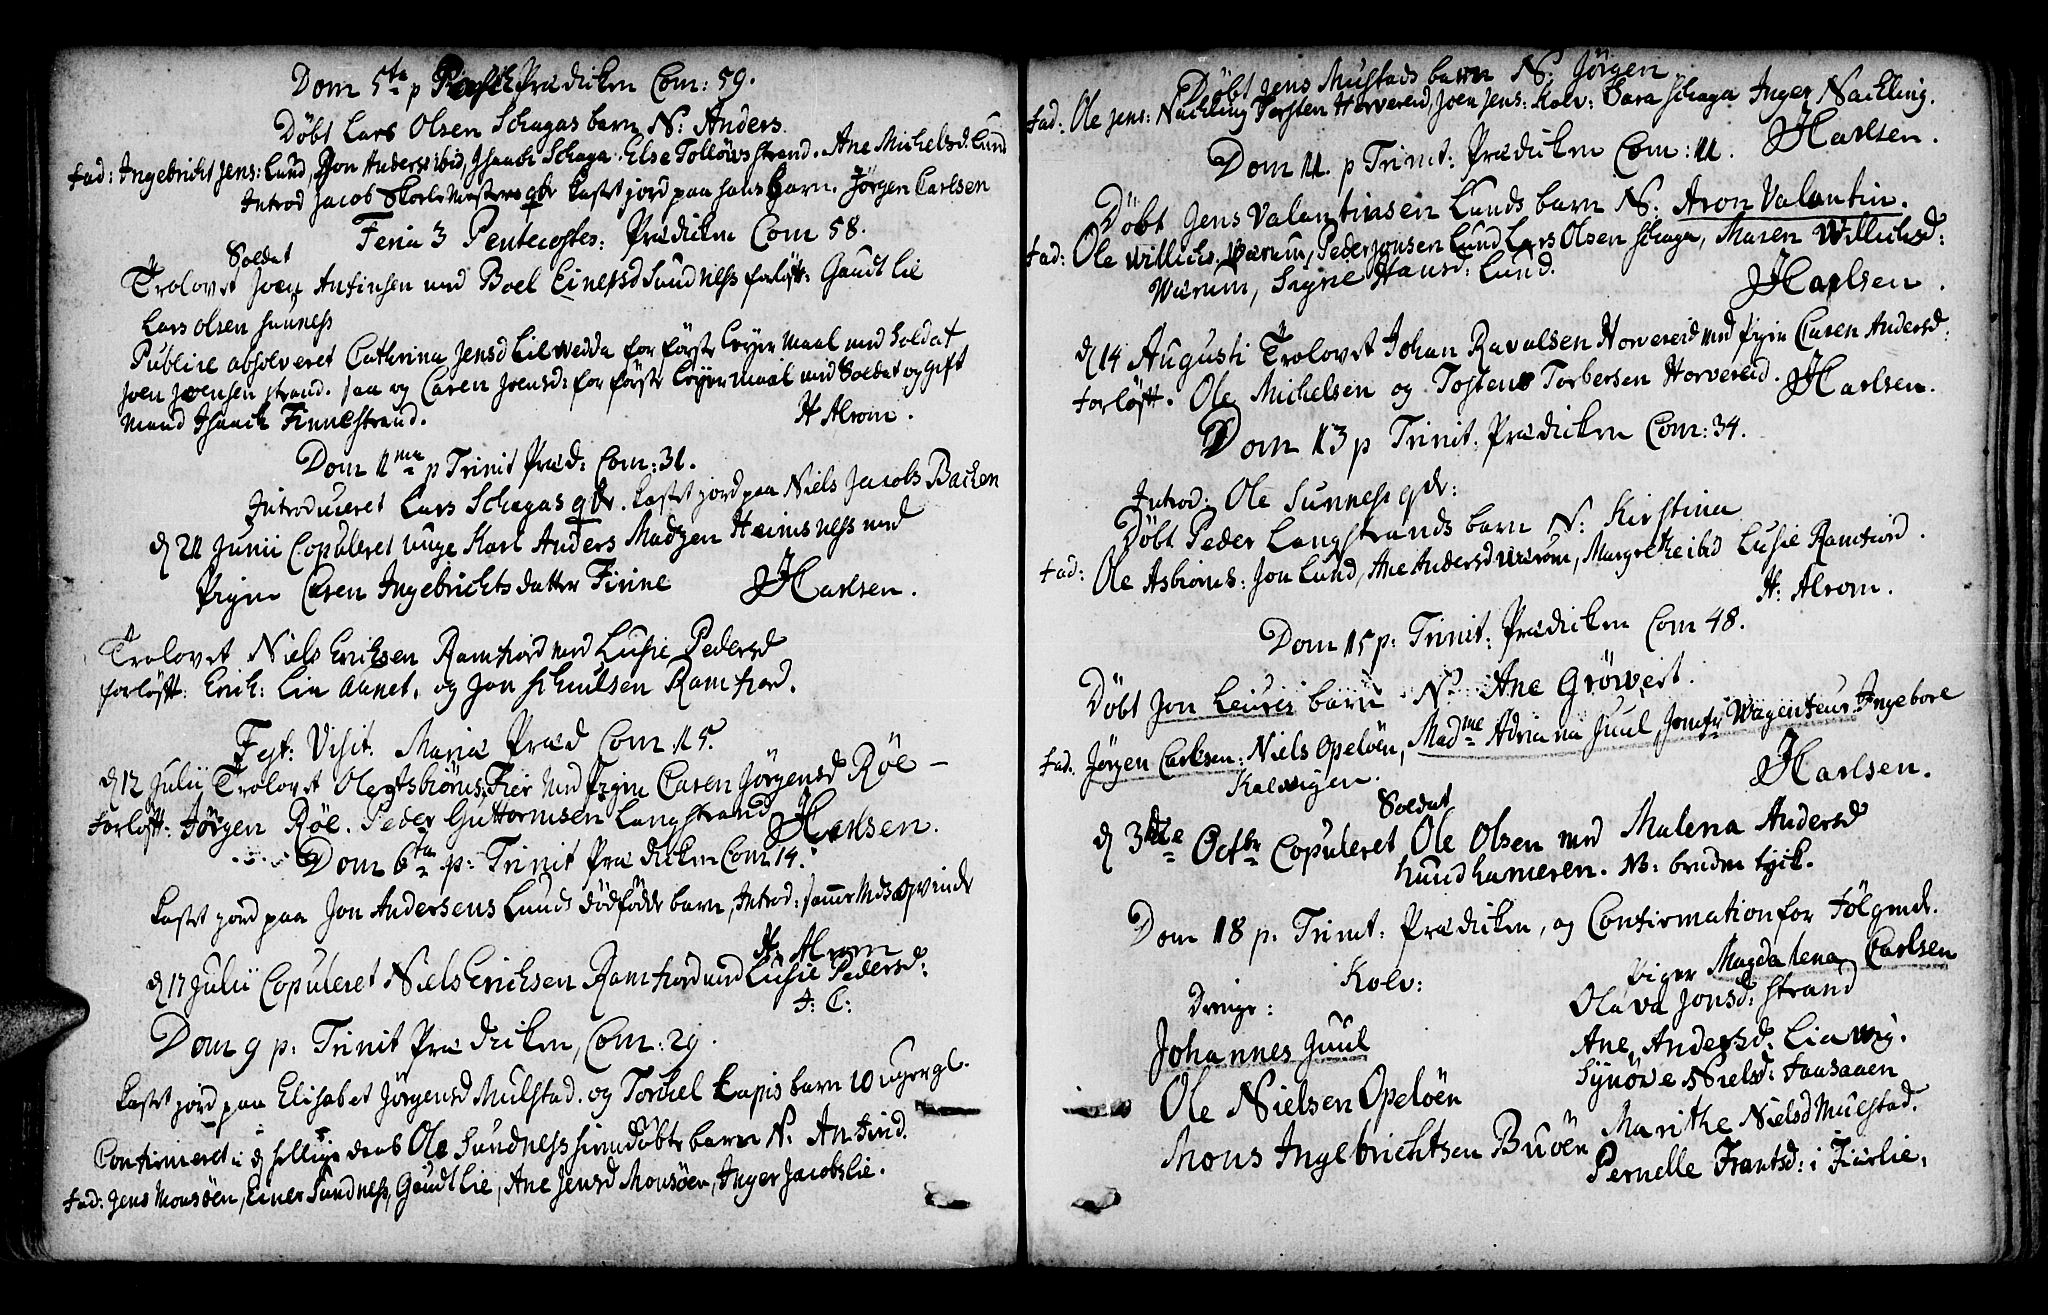 Dom 5ta p Pasch Prædicken Com: 59.
Döbt Lars Olsen Schagas barn N: Anders.
Fad: Ingebricht Jens: Lund, Jon Anders ibid, Isaach Schaga. Else Tollöwsstrand. Ane Michelsd. Lund
Introd Jacob Skorlemesters qv: Kastet jord paa hans barn. Jörgen Carlsen
Feria 3 Pentecostes: Prædicken Com 58.
Soldat
Trolovet Joen Anfinsen med Boel Einersd Sundness forlöft: Gaudt Lie
Lars Olsen Sunness
Publice absolveret Cathrina Jensd Lilwedda for förste Leyermaal med Soldat
Joen Joensen Strand. saa og Caren Joensd: for förste Leyermaal med Soldat og gift
Mand Isaach Finnestrand. H Alrom.
Dom 11ma p Trinit Præd: Com: 31.
Introduceret Lars Schagas qv. Kastet jord paa Niels Jacobs Backen
d 21 Junii Copuleret unge Karl Anders Madzen Heimsness med
Pigen Caren Ingebrichts datter Finne JHarlsen.
Trolovet Niels Erichsen Ramfiord med Lusie Pedersd
forlöft: Erich: Lia Aunet. og Jon Schiulsen Ramfiord.
Fest: Visit. Mariæ Præd Com 15.
d 12 Julii Trolovet Ole Asbiörns: Fier med Pigen Caren Jörgensd Röe –
Forlöft: Jörgen Röe. Peder Guttormsen Langstrand JHarlsen.
Dom 6ta p: Trinit Prædicken Com 14.
Kastet jord paa Jon Andersens Lunds dödfödde barn, Introd: samme Mds qvinde
H: Alrom
d 17 Julii Copuleret Niels Erichsen Ramfiord med Lusie Pedersd:
J: C:
Dom 9 p: Trinit Prædicken, Com: 29.
Kastet jord paa Elisabet Jörgensd Mulstad. og Torckel Lapis barn 10 uger gl.
Confirmeret i d hellige daab Ole Sundness hiemdöbte barn N: Anfind.
Fad: Jens Monsöen, Einer Sundness, Gaudt Lie, Ane Jensd Monsöen, Inger Jacobs Lie.
Döbt Jens Mustads barn N: Jörgen
Fad: Ole Jens: Nackling Torsten Horvereid, Joen Jens: Kolv: Sara Schaga Inger Nackling.
Dom 11. p Trinit: Prædicken Com: 11. JHarlsen.
Döbt Jens Valantinsen Lunds barn N. Aron Valantin.
Fad: Ole Willichs. Wærum, Peder Jonsen Lund Lars Olsen Schaga, Maren Willichsd:
Wærum, Signe Hansd: Lund.
JHarlsen.
d 14 Augusti Trolovet Johan Ravalsen Horvereid med Pigen Caren Andersd:
Forlöft. Ole Michelsen og Tosten Torbersen Horvereid. JHarlsen.
Dom 13 p Trinit: Prædicken Com: 34.
Introd: Ole Sunness qv:
Döbt Peder Langstrands barn N: Kirstina
Fad: Ole Asbiörns: Jon Lund, Ane Andersd Wærum, Margrethe ibid Lusie Ramfiord.
H: Alrom.
Dom 15 p: Trinit: Prædicken Com 48.
Döbt Jon Leuris barn N: Ane Gröwert.
Fad. Jörgen Carlsen: Niels Opelöen, Madme Adriana Juul, Jomfr Wagenteur. Ingebore
Kalwigen. JHarlsen.
Soldat
d 3die Octbr Copuleret Ole Olsen med Malena Andersd
hundkameren. NB: bruden tyck.
Dom 18 p: Trinit: Prædicken, og Confirmation for Fölgende.
Kolv:
Drenge:
Johannes Juul
Ole Nielsen Opelöen
Mons Ingebrichtsen Buöen
Piger Magdalena Carlsen
Olava Jonsd: Strand
Ane Andersd: Liawig.
Synöve Nielsd: Faasaaen
Marithe Nielsd Mustad.
Pernelle Frantsd: i Fiärlie.